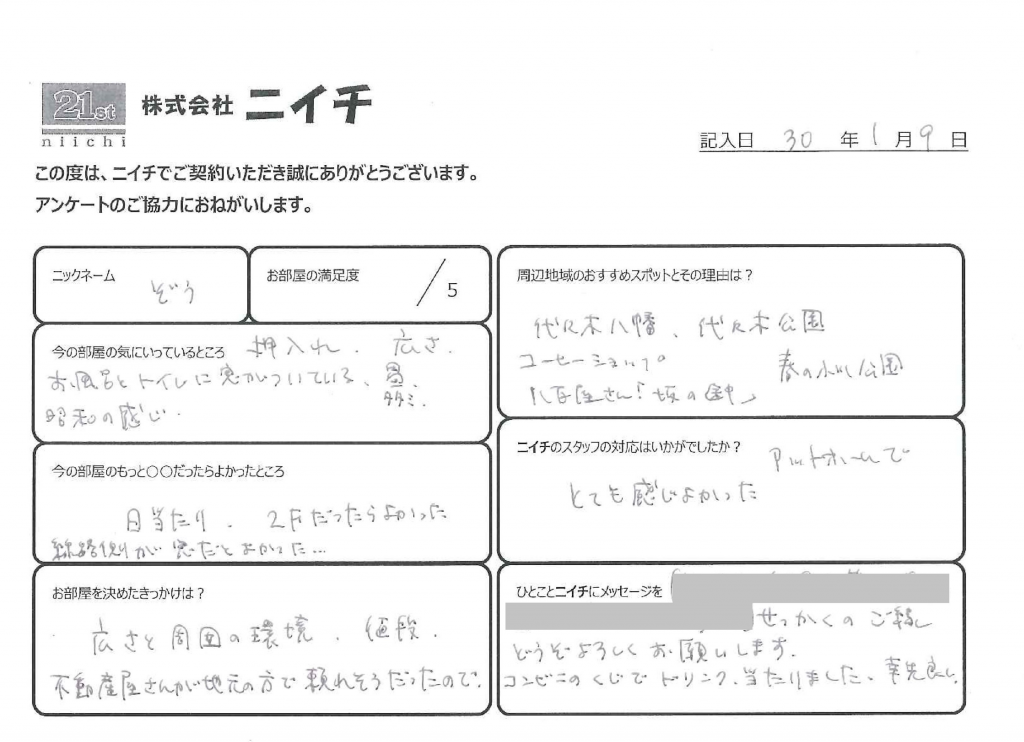 21st
niichi
株式会社 ニイチ
記入日 30 年 1 月 9 日
この度は、ニイチでご契約いただき誠にありがとうございます。
アンケートのご協力におねがいします。
ニックネーム
ぞう
お部屋の満足度
/5
今の部屋の気にいっているところ 押入れ. 広さ.
お風呂とトイレに窓がついている、畳.
タタミ.
昭和の感じ.
今の部屋のもっと○○だったらよかったところ
日当たり. 2Fだったらよかった
線路側が窓だとよかった…
お部屋を決めたきっかけは？
広さと周囲の環境. 値段.
不動産屋さんが地元の方で頼れそうだったので.
周辺地域のおすすめスポットとその理由は？
代々木八幡、代々木公園
コーヒーショップ。
春の小川公園
八百屋さん! 坂の途中
ニイチのスタッフの対応はいかがでしたか？ アットホームで
とても感じよかった
ひとことニイチにメッセージを
せっかくのご縁
どうぞよろしくお願いします.
コンビニのくじでドリンク、当たりました、幸先良し.